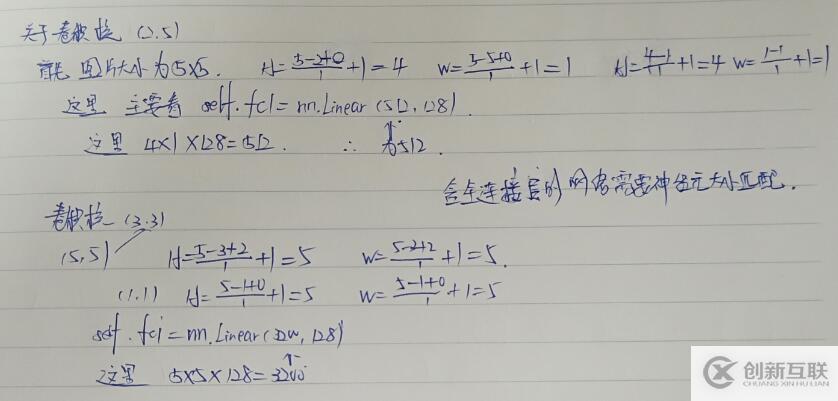 关于卷积核 (2.5)
首先 图片大小为5×5. H=(5-2+0)/1+1=4 W=(5-5+0)/1+1=1 H=(4-1)/1+1=4 W=(1-1)/1+1=1
这里 主要看 self.fc1=nn.Linear(512,128).
这里 4×1×128=512. ∴ 为512.
含全连接层的网络需要神经元大小匹配.
卷积核 (3.3)
(5,5) H=(5-3+2)/1+1=5 W=(5-2+2)/1+1=5.
(1.1) H=(5-1+0)/1+1=5 W=(5-1+0)/1+1=5
self.fc1=nn.Linear(3200,128)
这里 5×5×128=3200
创新互联
CHUANG XIN HU LIAN